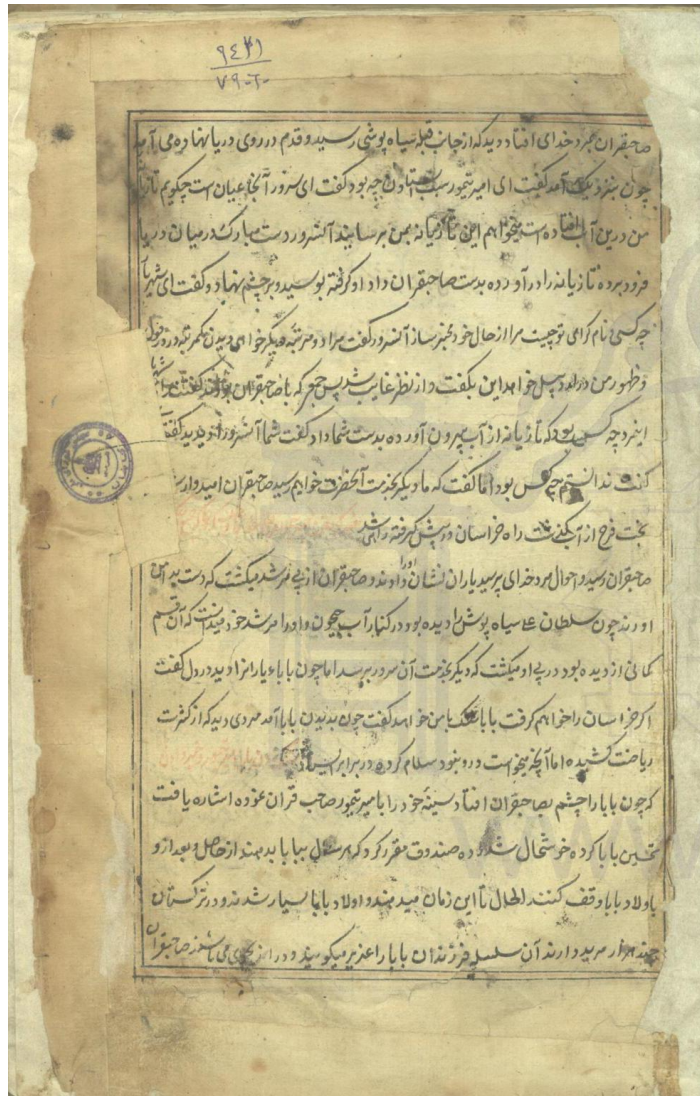 ۹۴۴۱
۷۹۰۲۰
صاحبقران بمرد خدای افتاد دید که از جانب قبله سیاه پوشی رسید و قدم در روی دریا نهاده می آمد
چون بنزدیک آمد گفت ای امیر تیمور سبب استادن چه بود گفت ای سرور آنجا عیان است چگویم تازیانه
من درین آب افتاده است میخواهم این تازیانه بمن برسانید آنسرور دست مبارک در میان دریا
فرو برده تازیانه را در آورده بدست صاحبقران داد او گرفته بوسید و بر چشم نهاد و گفت ای شهریار
چه کسی نام کرامی تو چیست مرا از حال خود مخبر ساز آنسرور گفت مرا دو مرتبه دیگر خواهی دیدن یکمرتبه در
و ظهور من در خواهد این بگفت و از نظر غایب شد پس که با صاحبقران بودند گفت
اینمرد چه کس بود که تازیانه از آب بیرون آورده بدست شما داد گفت شما آنسرور را دیدید گفتند
گفت ندانستم چه کس بود اما گفت که ما دیگر بخدمت آنحضرت خواهم رسید صاحبقران امیدوار
فرح از آب گذشت راه خراسان در پیش گرفته راهی شد
صاحبقران رسید و احوال مرد خدای پرسید یاران نشان اورا دادند و صاحبقران از پی مرشد میگشت که دست بدامن
او زند چون سلطان سیاه پوش را دیده بود در کنار آب جیحون و او را مرشد خود میدانست که آن قسم
کمالی از و دیده بود در پی او میگشت که دیگر بخدمت آن سرور برسد اما چون بابا را دید در دل گفت
اگر خراسان را خواهم گرفت بابا با من خواهد گفت چون بدیدن بابا آمد مردی دید که از کثرت
ریاضت کشیده اما آنچه میخواست در و نبود سلام کرده در برابر
که چون بابا را چشم بصاحبقران افتاد سینهٔ خود را با میر تیمور صاحب قران نموده اشاره یافت
تحسین بابا کرده خوشحال شد و ده صندوق مقرر کرد که هر سال ببابا بدهند از حاصل و بعد از و
باولاد بابا وقف کنند الحال تا این زمان میدهند و اولاد بابا بسیار شدند و در ترکستان
چند هزار مرید دارند آن سلسله فرزندان بابا را عذیر میگویند و در می باشند صاحبقران